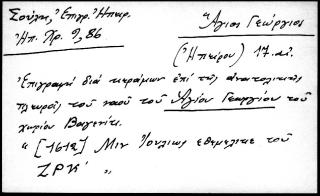 Σούλης, Ἐπιγρ. Ἠπειρ.
Ἠπ. Χρ. 9, 86
Ἅγιος Γεώργιος
(Ἠπείρου) 17. αἰ.
Ἐπιγραφή διά κεράμων ἐπί τῆς ἀνατολικῆς
πλευρᾶς τοῦ ναοῦ τοῦ Ἁγίου Γεωργίου τοῦ
χωρίου Βαγενίτι.
" [1612] Μιν Ἰουλιως εθεμελιτε του
ΖΡΚ' "